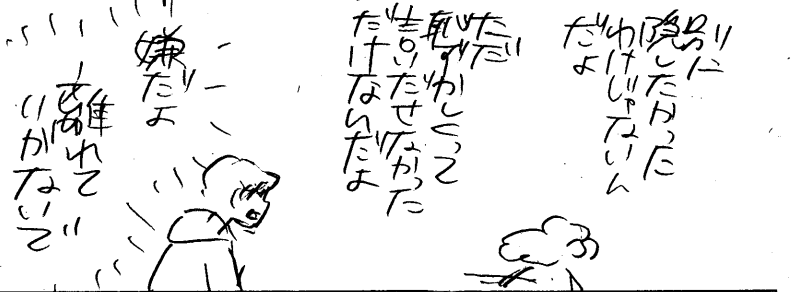 別に
隠したかった
わけじゃないん
だよ
ただ
恥ずかしくって
言いだせなかった
だけないんだよ
嫌だよ
離れて
いかないで